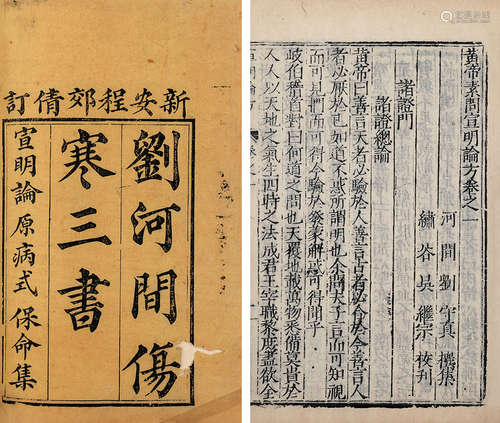 新安程郊倩訂
劉河間傷
寒三書
宣明論 原病式 保命集
黄帝素問宣明論方卷之一
河間劉守真撰集
繡谷吳繼宗校刊
諸證門
諸證總論
黄帝曰善言天者必驗於人善言古者必合於今善言人
者必厭於已如道不惑所謂明也余問夫子言而可知視
而可見捫而可得令驗於發蒙解惑可得聞乎
岐伯稽首對曰何道之問也天覆地載萬物悉備莫貴於
人人以天地之氣生四時之法成君王宰職黎庶盡欲全